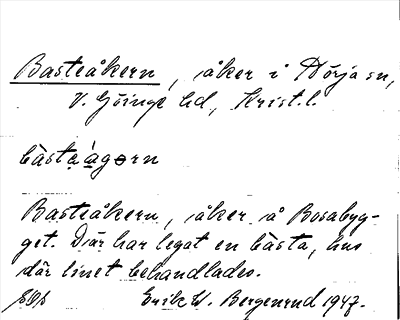 Basteåkern, åker i Nörja sn,
V. Göinge hd, Krist. l.
bàstaàgorn
Basteåkern, åker å Bosabyg-
get. Där har legat en bàsta, hus
där linet behandlades.
Erik W. Bergenrud 1947.